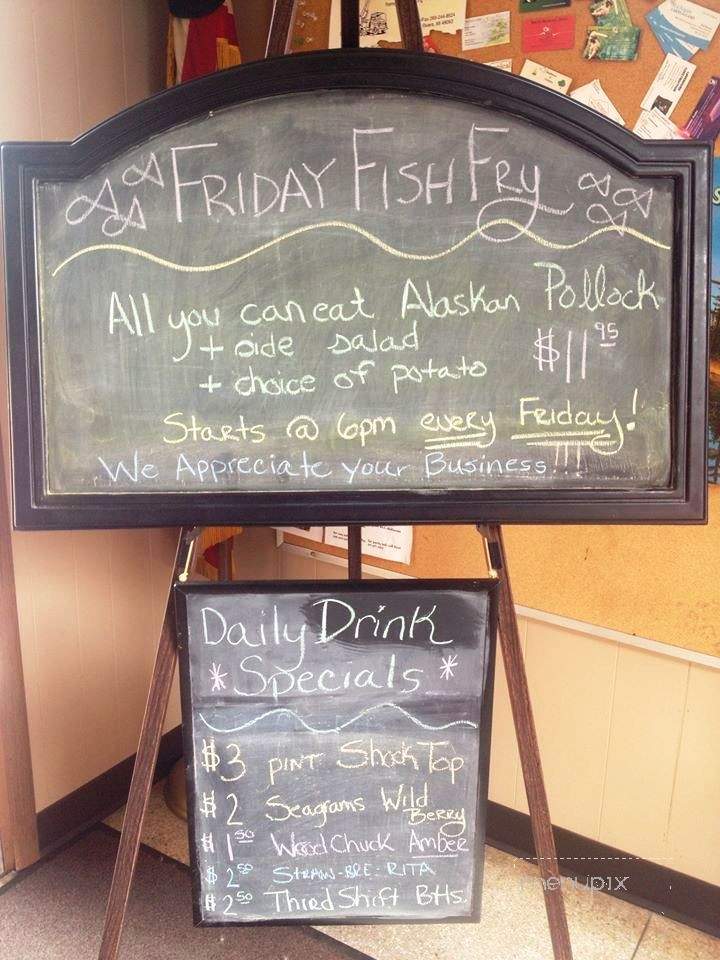 FRIDAY FISH FRY
All you can eat Alaskan Pollock
+ side salad
+ choice of potato
$11.95
Starts @ 6pm every Friday!
We Appreciate your Business!!!
Daily Drink
* Specials *
$3 PINT Shock Top
$2 Seagrams Wild
Berry
$1.50 WoodChuck Amber
$2.50 STRAW-BRE-RITA
$2.50 Third Shift Btls.
menupix